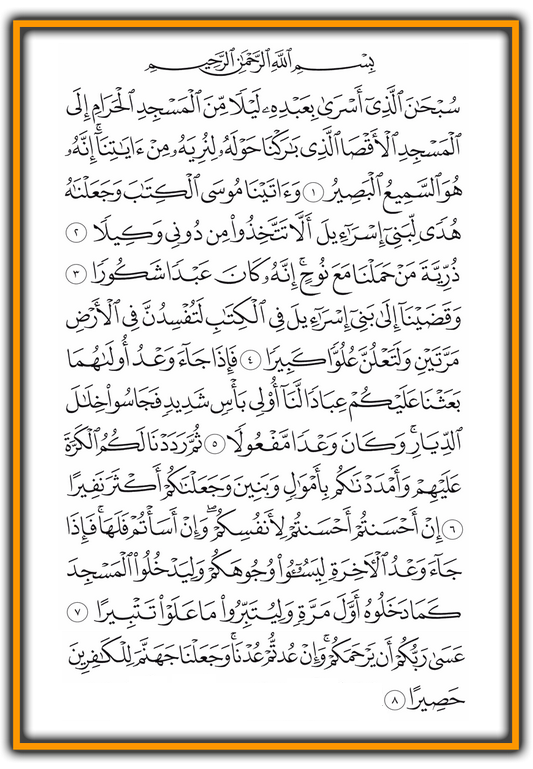 بِسْمِ ٱللَّهِ ٱلرَّحْمَٰنِ ٱلرَّحِيمِ
سُبْحَٰنَ ٱلَّذِىٓ أَسْرَىٰ بِعَبْدِهِۦ لَيْلًا مِّنَ ٱلْمَسْجِدِ ٱلْحَرَامِ إِلَى
ٱلْمَسْجِدِ ٱلْأَقْصَا ٱلَّذِى بَٰرَكْنَا حَوْلَهُۥ لِنُرِيَهُۥ مِنْ ءَايَٰتِنَآ ۚ إِنَّهُۥ
هُوَ ٱلسَّمِيعُ ٱلْبَصِيرُ ١ وَءَاتَيْنَا مُوسَى ٱلْكِتَٰبَ وَجَعَلْنَٰهُ
هُدًى لِّبَنِىٓ إِسْرَٰٓءِيلَ أَلَّا تَتَّخِذُوا۟ مِن دُونِى وَكِيلًا ٢
ذُرِّيَّةَ مَنْ حَمَلْنَا مَعَ نُوحٍ ۚ إِنَّهُۥ كَانَ عَبْدًا شَكُورًا ٣
وَقَضَيْنَآ إِلَىٰ بَنِىٓ إِسْرَٰٓءِيلَ فِى ٱلْكِتَٰبِ لَتُفْسِدُنَّ فِى ٱلْأَرْضِ
مَرَّتَيْنِ وَلَتَعْلُنَّ عُلُوًّا كَبِيرًا ٤ فَإِذَا جَآءَ وَعْدُ أُولَىٰهُمَا
بَعَثْنَا عَلَيْكُمْ عِبَادًا لَّنَآ أُو۟لِى بَأْسٍ شَدِيدٍ فَجَاسُوا۟ خِلَٰلَ
ٱلدِّيَارِ ۚ وَكَانَ وَعْدًا مَّفْعُولًا ٥ ثُمَّ رَدَدْنَا لَكُمُ ٱلْكَرَّةَ
عَلَيْهِمْ وَأَمْدَدْنَٰكُم بِأَمْوَٰلٍ وَبَنِينَ وَجَعَلْنَٰكُمْ أَكْثَرَ نَفِيرًا
٦ إِنْ أَحْسَنتُمْ أَحْسَنتُمْ لِأَنفُسِكُمْ ۖ وَإِنْ أَسَأْتُمْ فَلَهَا ۚ فَإِذَا
جَآءَ وَعْدُ ٱلْءَاخِرَةِ لِيَسُۥٓـُٔوا۟ وُجُوهَكُمْ وَلِيَدْخُلُوا۟ ٱلْمَسْجِدَ
كَمَا دَخَلُوهُ أَوَّلَ مَرَّةٍ وَلِيُتَبِّرُوا۟ مَا عَلَوْا۟ تَتْبِيرًا ٧
عَسَىٰ رَبُّكُمْ أَن يَرْحَمَكُمْ ۚ وَإِنْ عُدتُّمْ عُدْنَا ۘ وَجَعَلْنَا جَهَنَّمَ لِلْكَٰفِرِينَ
حَصِيرًا ٨